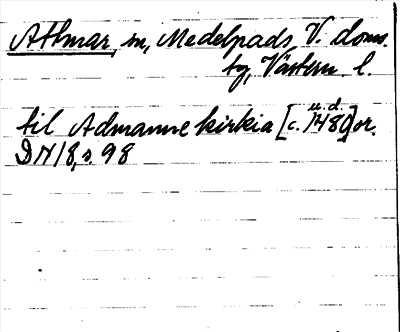 Attmar, sn, Medelpads V. doms.
by, Västern. l.
til Admanne kirkia [c. 1480] or.
u. d.
DN 18, s. 98